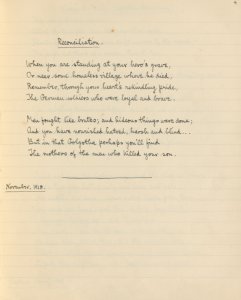 Reconciliation.
When you are standing at your hero's grave,
Or near some homeless village where he died,
Remember, through your heart's rekindling pride,
The German soldiers who were loyal and brave.
Men fought like brutes; and hideous things were done;
And you have nourished hatred, harsh and blind...
But in that Golgotha perhaps you'll find
The mothers of the men who killed your son.
November, 1918.